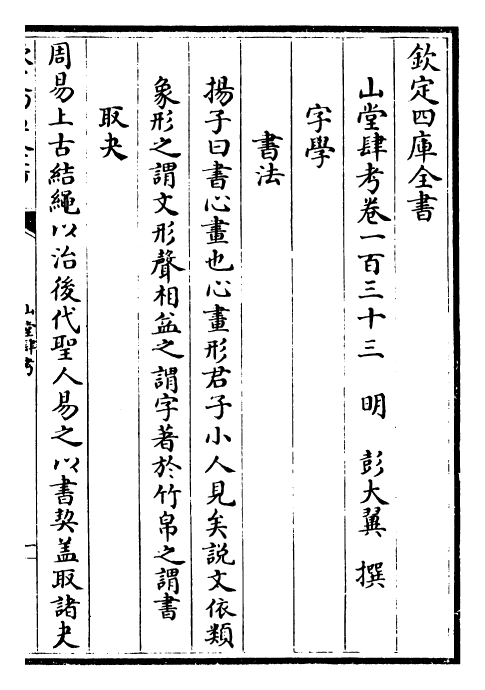 欽定四庫全書
山堂肆考卷一百三十三 明 彭大翼 撰
字學
書法
揚子曰書心畫也心畫形君子小人見矣說文依類
象形之謂文形聲相益之謂字著於竹帛之謂書
取夬
周易上古結繩以治後代聖人易之以書契蓋取諸夬
山堂肆考